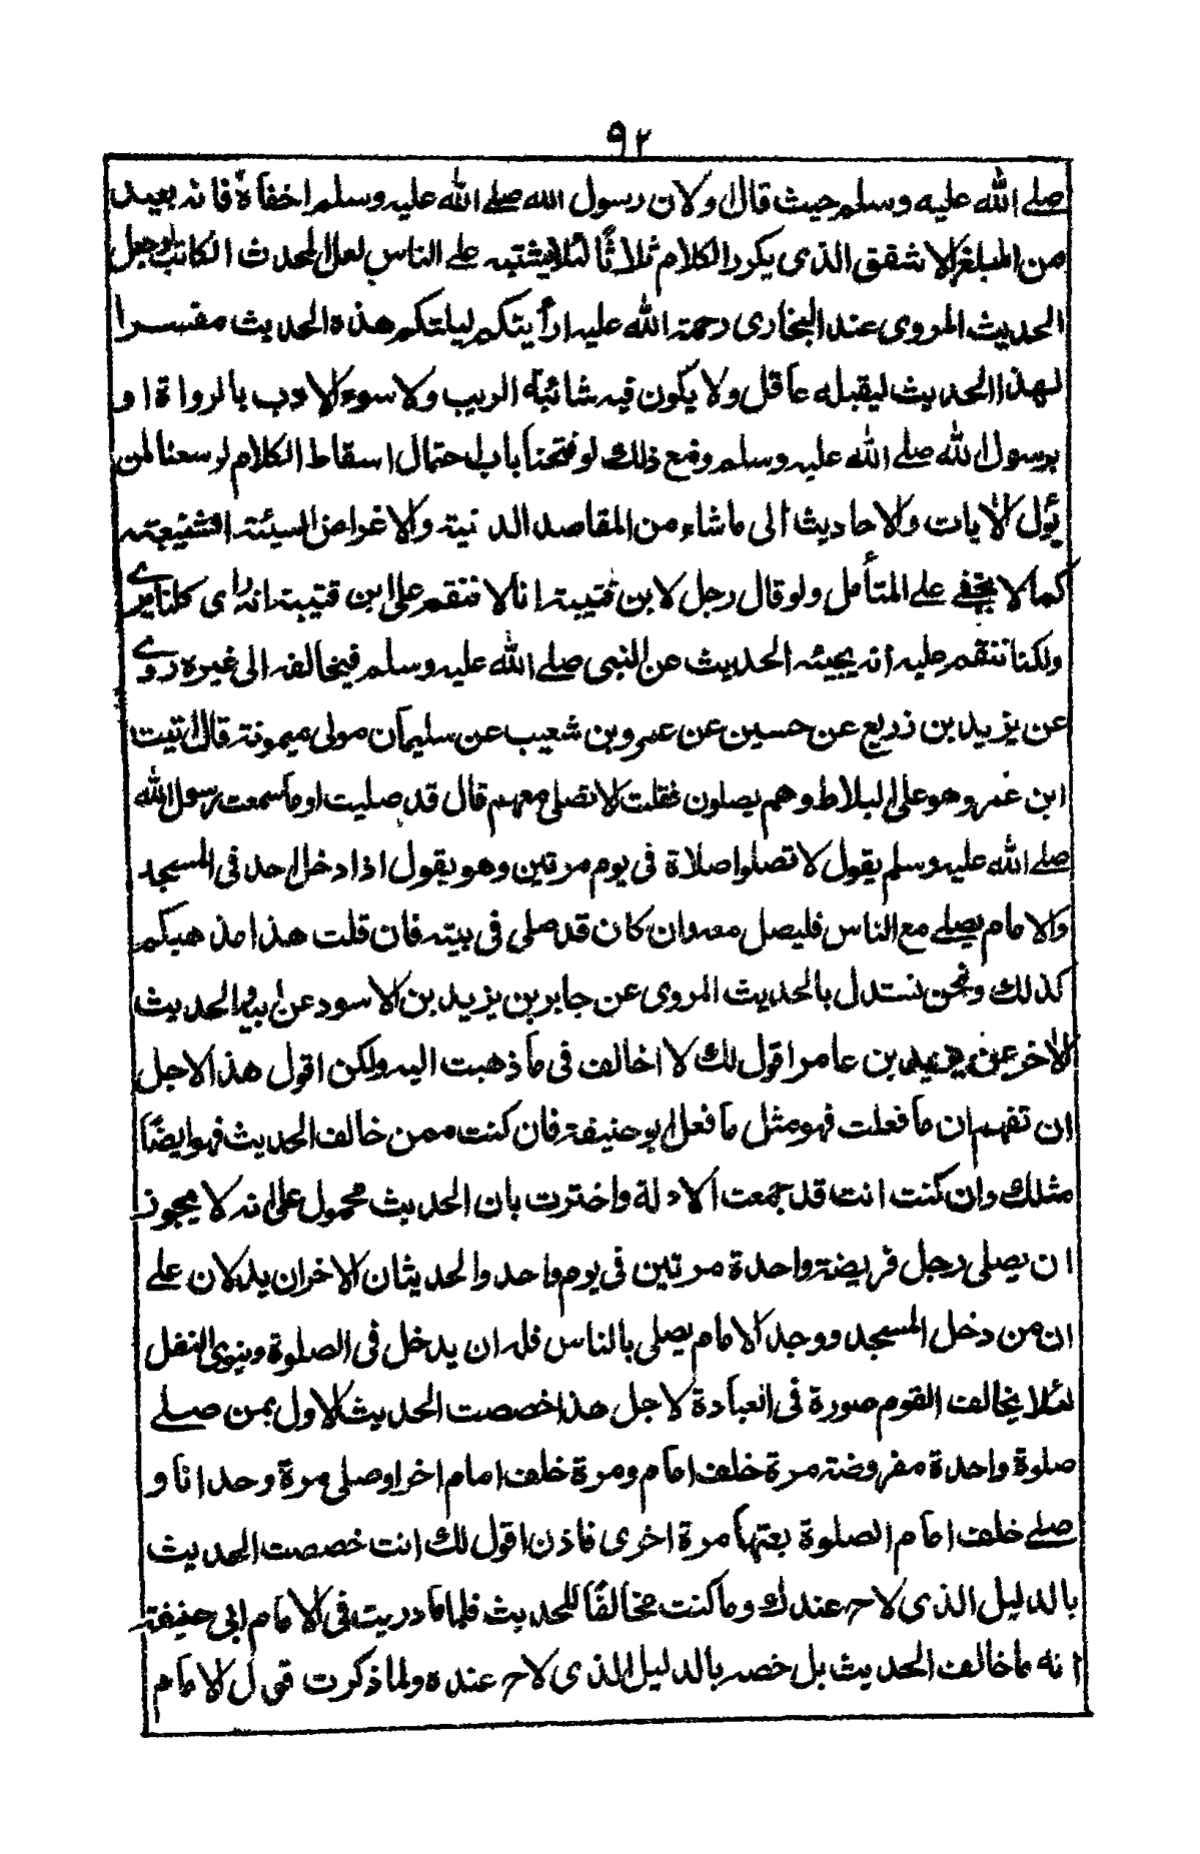 ٩٢
صلے الله عليه وسلم حيث قال اولان رسول الله صلے الله عليه وسلم اخفاه فانه بعيد
من المبلغ الاشفق الذى يكرر الكلام ثلاثاً لئلا يشتبه على الناس لعل المحدث الكاتب لوجعل
الحديث المروى عند البخارى رحمة الله عليه ارأيتكم ليلتكم هذه الحديث مفسرا
لهذا الحديث ليقبله عاقل ولا يكون فيه شائبة الريب ولا سوء الادب بالرواة او
برسول الله صلے الله عليه وسلم ومع ذلك لو فتحنا باب احتمال اسقاط الكلام لوسعنا لمن
يؤل الأيات والاحاديث الى ماشاء من المقاصد الدنية والاغراض السيئة الشنيعة
كما لا يخفے علے المتأمل ولو قال رجل لابن قتيبة انا لا ننقم على ابن قتيبة انه راى كلنا يرے
ولكنا ننقم عليه انه يجيئه الحديث عن النبى صلے الله عليه وسلم فيخالفه الى غيره روے
عن يزيد بن زريع عن حسين عن عمرو بن شعيب عن سليمان مولى ميمونة قال اتيت
ابن عمر وهو على البلاط وهم يصلون فقلت لا تصلى معهم قال قد صليت اوما سمعت رسول الله
صلے الله عليه وسلم يقول لا تصلوا صلاة فى يوم مرتين وهو يقول اذا دخل احد فى المسجد
والامام يصلے مع الناس فليصل معه وان كان قد صلى فى بيته فان قلت هذا مذهبكم
كذلك ونحن نستدل بالحديث المروى عن جابر بن يزيد بن الاسود عن ابيه والحديث
الأخر عن يزيد بن عامر اقول لك لا اخالف فى ما ذهبت اليه ولكن اقول هذا لاجل
ان تفهم ان ما فعلت فهو مثل ما فعل ابو حنيفة فان كنت ممن خالف الحديث فهو ايضًا
مثلك وان كنت انت قد جمعت الادلة واخترت بان الحديث محمول على انه لا يجوز
ان يصلى رجل فريضة واحدة مرتين فى يوم واحد والحديثان الاخران يدلان علے
ان من دخل المسجد ووجد الامام يصلى بالناس فله ان يدخل فى الصلوة وينوى النفل
لئلا يخالف القوم صورة فى العبادة لاجل هذا خصصت الحديث الاول بمن صلے
صلوة واحدة مفروضة مرة خلف امام ومرة خلف امام اخر اوصلى مرة وحدانا و
صلے خلف امام الصلوة بعينها مرة اخرى فاذن اقول لك انت خصصت الحديث
بالدليل الذى لاح عندك وما كنت مخالفًا للحديث فلما ما دريت فى الامام ابى حنيفة
انه ما خالف الحديث بل خصه بالدليل الذى لاح عنده ولما ذكرت قول الامام